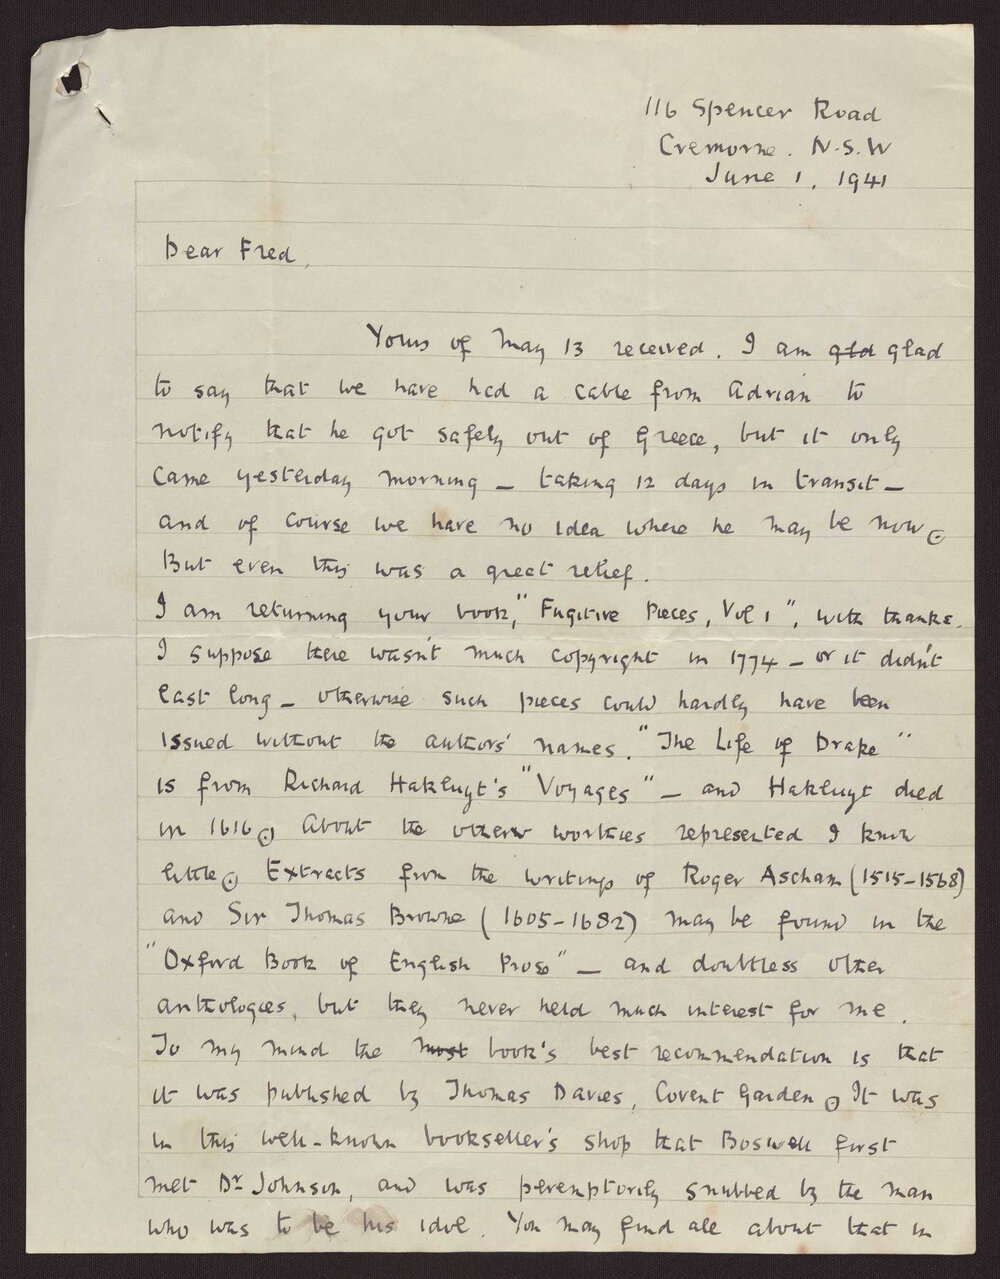 116 Spencer Road
Cremorne. N.S.W
June 1, 1941
Dear Fred,
Yours of May 13 received. I am gld glad
to say that we have had a cable from Adrian to
notify that he got safely out of Greece, but it only
came yesterday morning — taking 12 days in transit —
and of course we have no idea where he may be now.
But even this was a great relief.
I am returning your book, "Fugitive Pieces, Vol 1", with thanks.
I suppose there wasn't much copyright in 1774 — or it didn't
last long — otherwise such pieces could hardly have been
issued without the authors' names. "The Life of Drake"
is from Richard Hakluyt's "Voyages" — and Hakluyt died
in 1616. About the others worthies represented I know
little. Extracts from the writings of Roger Ascham (1515-1568)
and Sir Thomas Browne (1605-1682) may be found in the
"Oxford Book of English Prose" — and doubtless other
anthologies, but they never held much interest for me.
To my mind the most book's best recommendation is that
it was published by Thomas Davies, Covent Garden. It was
in this well-known bookseller's shop that Boswell first
met Dr Johnson, and was peremptorily snubbed by the man
who was to be his idol. You may find all about that in